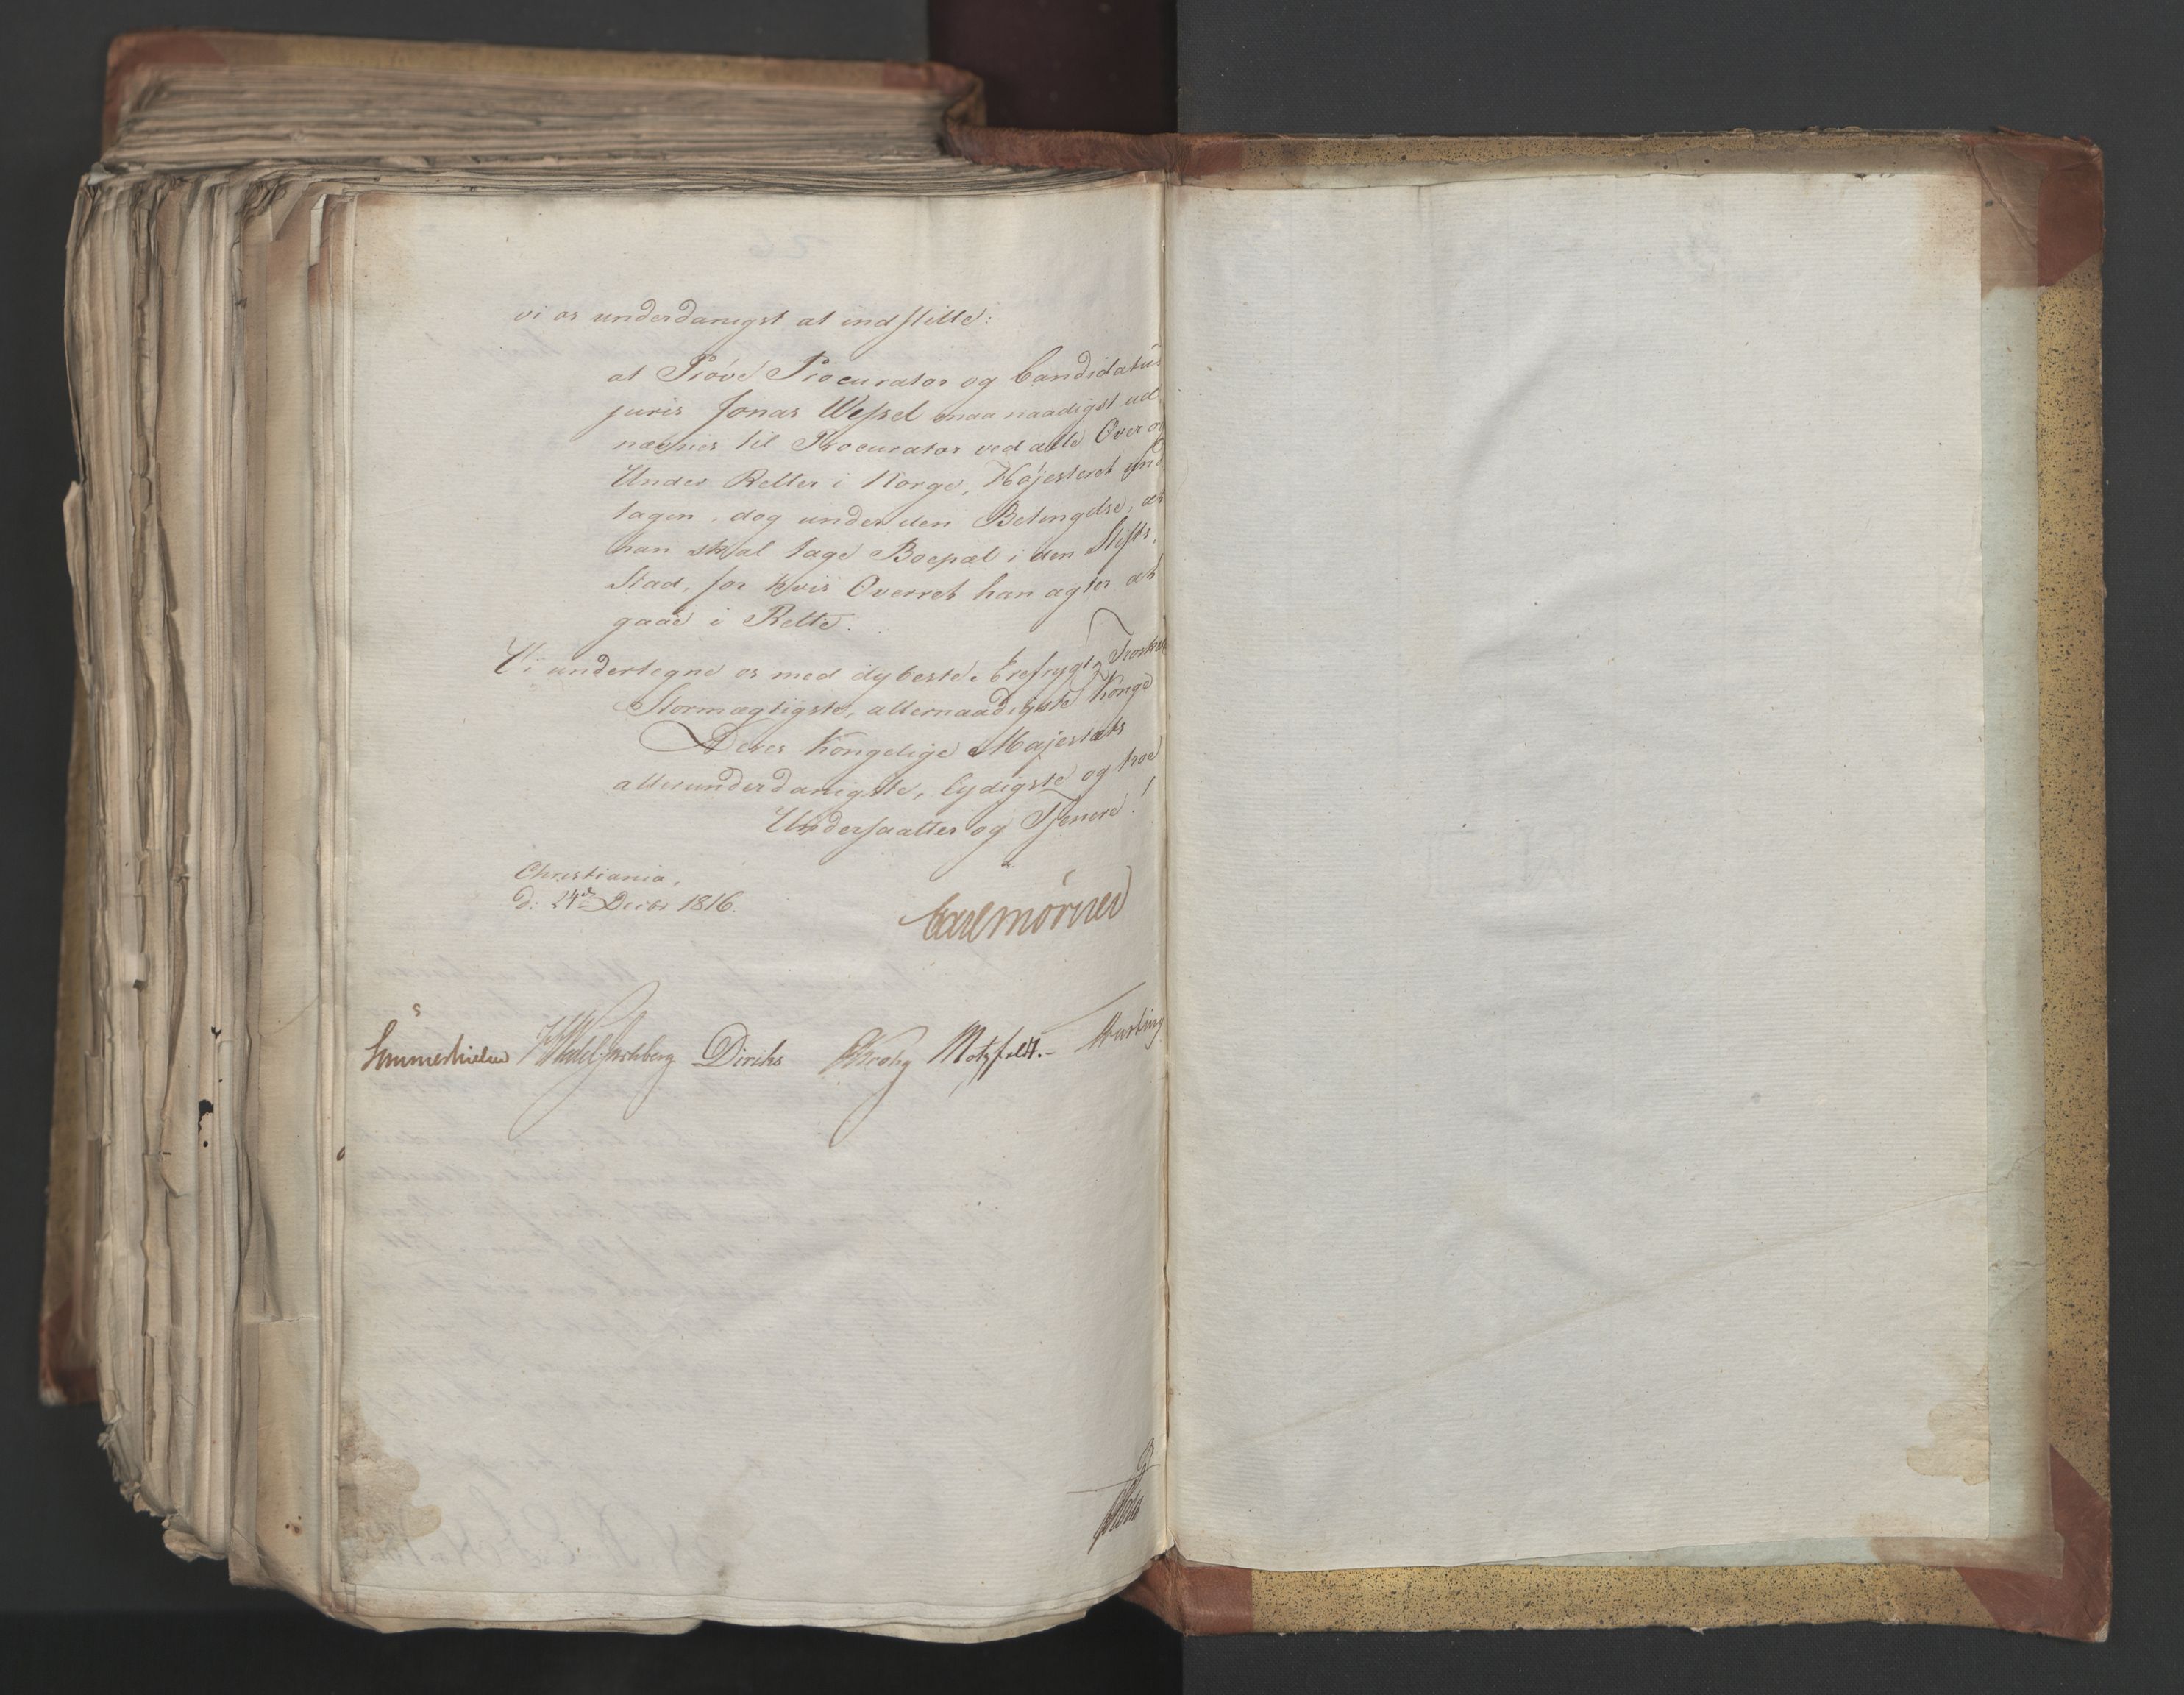 vi os underdanigst at indstille:
at Prøve Procurator og Candidatus
juris Jonas Wessel maa naadigst ud
nævnes til Procurator ved alle Over og
Under Retter i Norge, Høiesteret und
tagen, dog under den Betingelse, at
han skal tage Boepæl i den Stifts-
Stad, for hvis Overret han agter at
gaae i Rette.
Vi undertegne os med dybeste Erefrygt og Troskab
Stormægtigste, allernaadigste Konge
Deres Kongelige Majestæts
allerunderdanigste, lydigste og troe
Undersaatter og Tjenere!
Christiania,
d: 24de Decbr 1816.
Carl Mörner
Sommerhielm Wedel Jarlsberg Diriks Krohg Motzfeldt.-